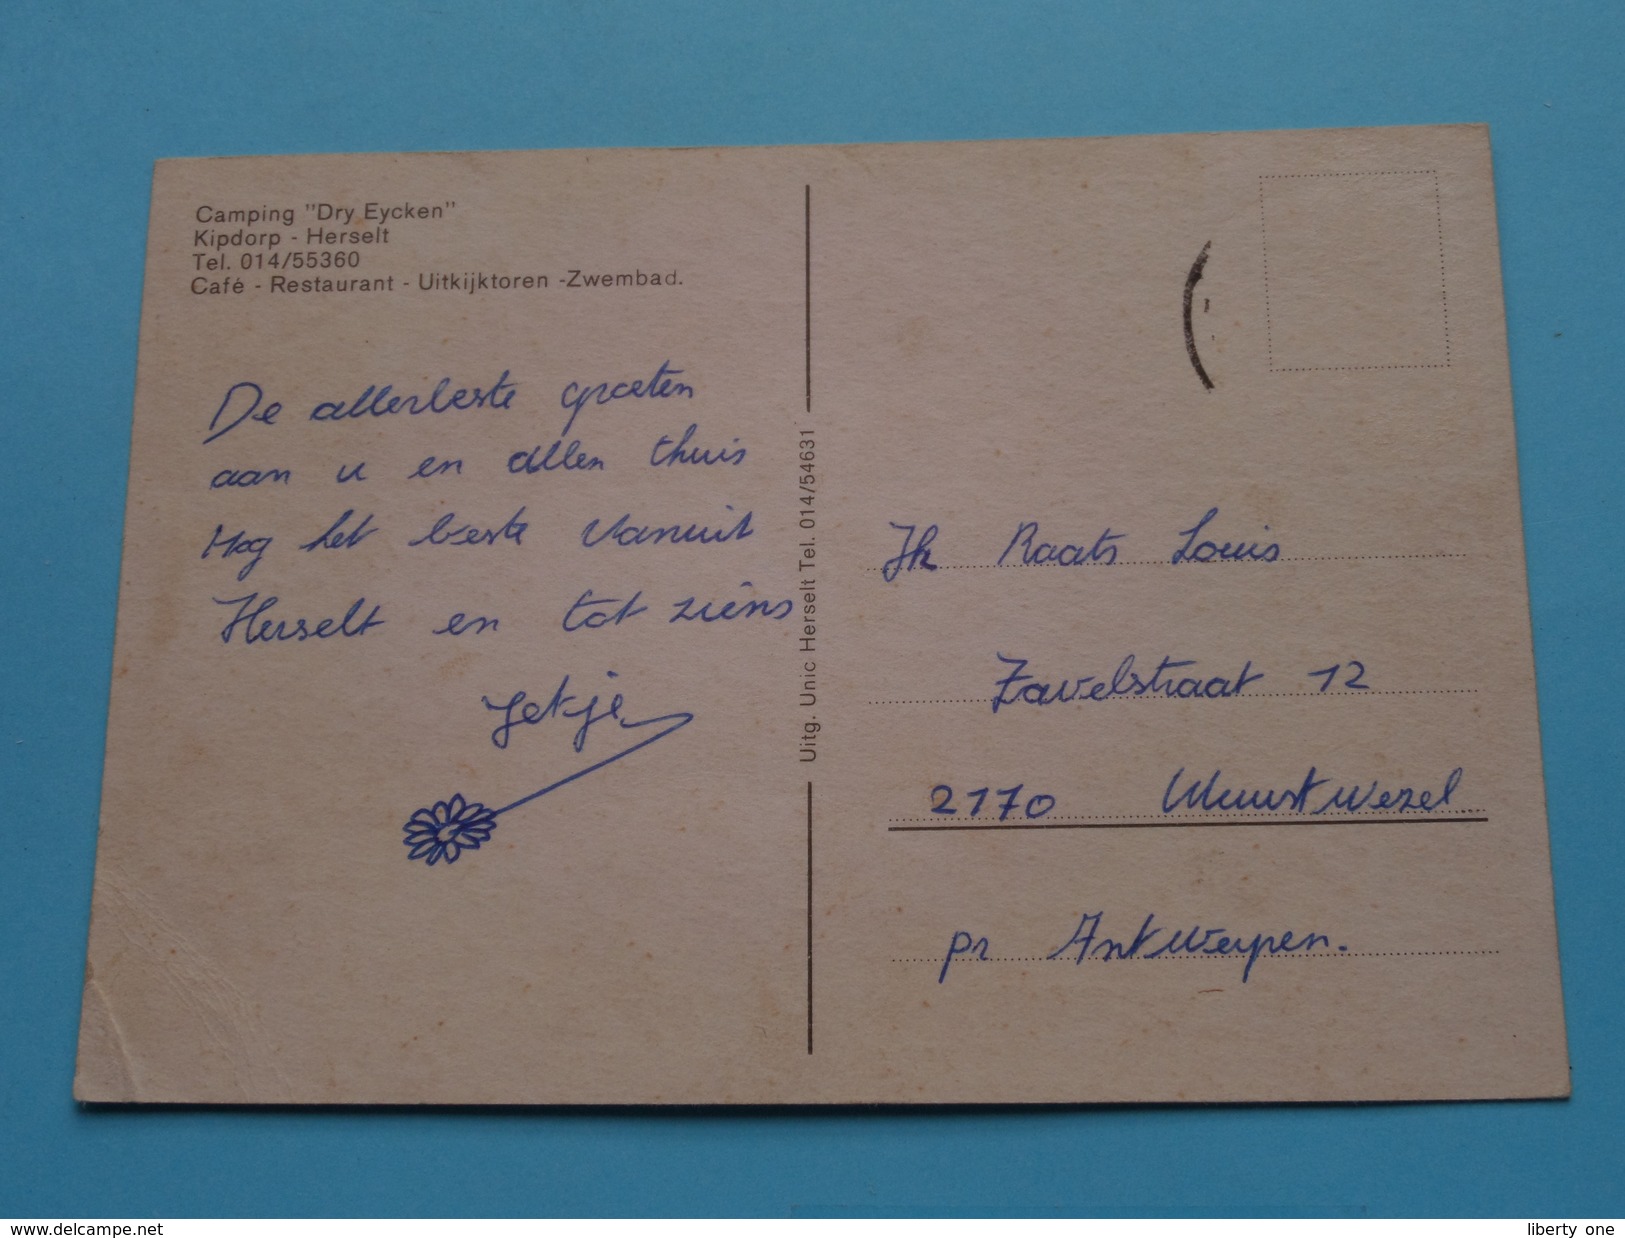 Camping "Dry Eycken"
Kipdorp - Herselt
Tel. 014/55360
Café - Restaurant - Uitkijktoren -Zwembad.
De allerbeste groeten
aan u en allen thuis
Nog het beste vanuit
Herselt en tot ziens
Jetje
Uitg. Unic Herselt Tel. 014/54631
Jk Raats Louis
Zavelstraat 12
2170 Wuustwezel
pr Antwerpen.
www.delcampe.net
liberty one